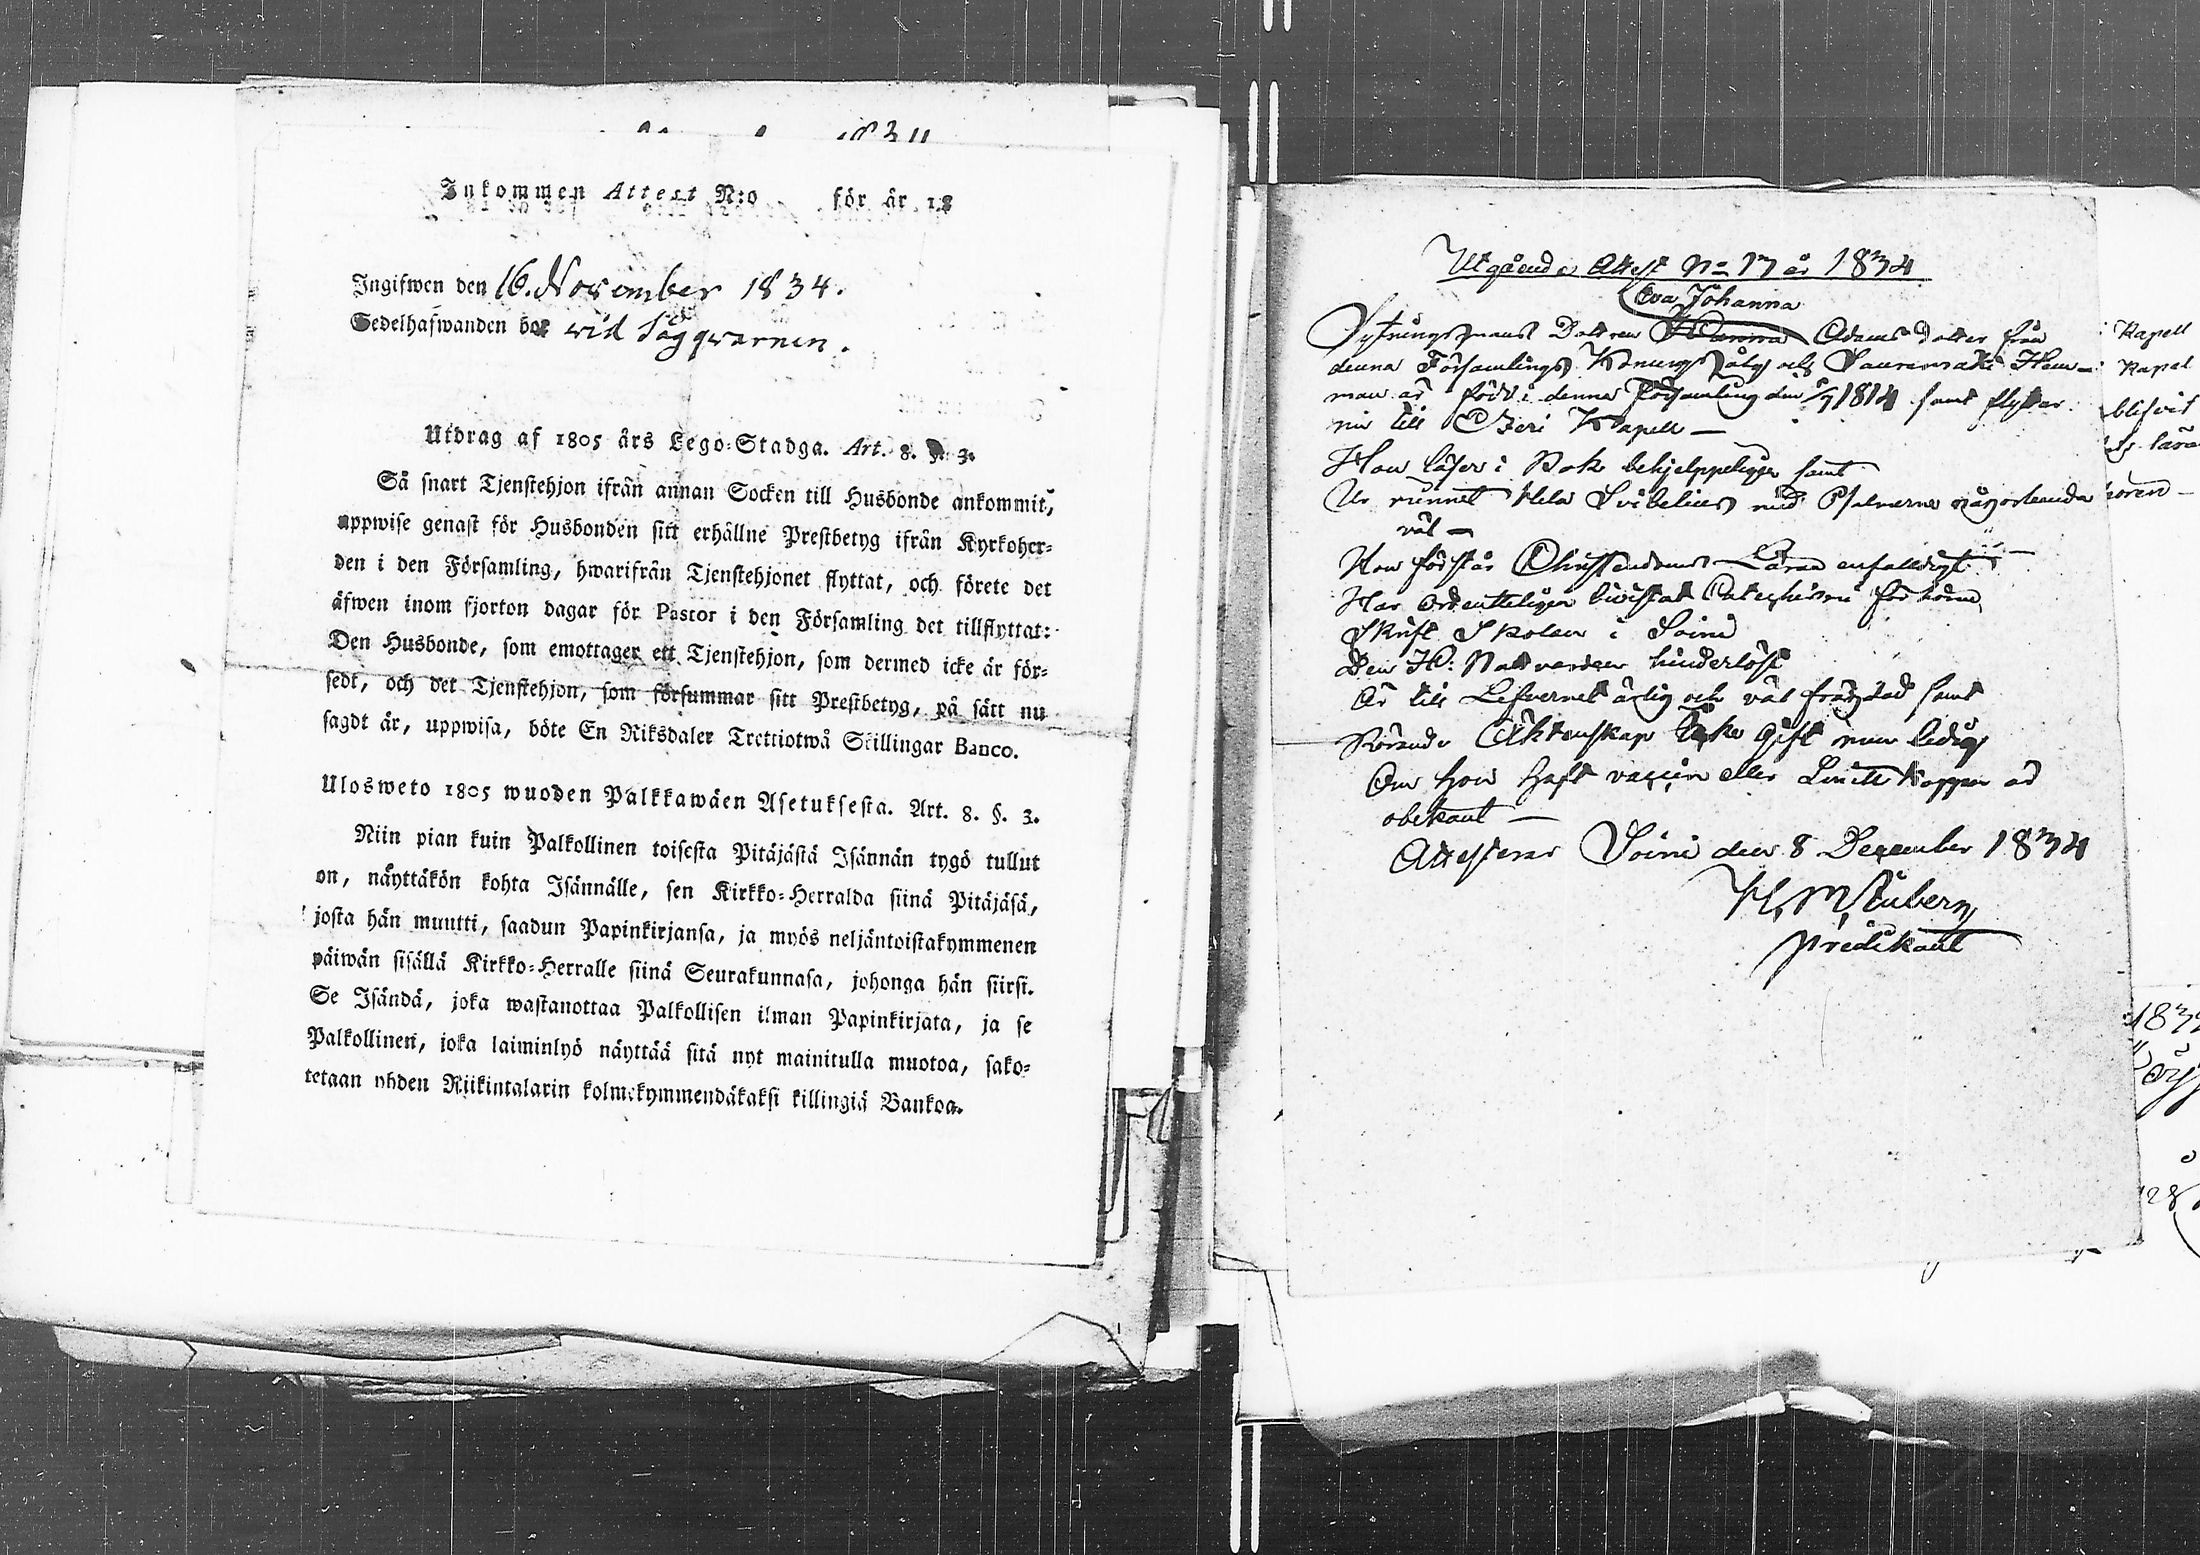 Inkommen Attest N:o för år 18
Ingifwen den 16. November 1834.
Sedelhafwanden bor wid Sågqvarnen.
Utdrag af 1805 års Lego-Stadga. Art. 8. §. 3.
Så snart Tjenstehjon ifrån annan Socken till Husbonde ankommit,
uppwise genast för Husbonden sitt erhållne Prestbetyg ifrån Kyrkoher-
den i den Församling, hwarifrån Tjenstehjonet flyttat, och förete det
äfwen inom fjorton dagar för Pastor i den Församling det tillflyttat:
Den Husbonde, som emottager ett Tjenstehjon, som dermed icke är för-
sedt, och det Tjenstehjon, som försummar sitt Prestbetyg, på sätt nu
sagdt är, uppwisa, böte En Riksdaler Trettiotwå Skillingar Banco.
Ulosweto 1805 wuoden Palkkawäen Asetuksesta. Art. 8. §. 3.
Niin pian kuin Palkollinen toisesta Pitäjästä Isännän tygö tullut
on, näyttäkön kohta Isännälle, sen Kirkko-Herralda siinä Pitäjäsä,
josta hän muutti, saadun Papinkirjansa, ja myös neljäntoistakymmenen
päiwän sisällä Kirkko-Herralle siinä Seurakunnasa, johonga hän siirsi.
Se Isändä, joka wastanottaa Palkollisen ilman Papinkirjata, ja se
Palkollinen, joka laiminlyö näyttää sitä nyt mainitulla muotoa, sako-
tetaan yhden Riikintalarin kolmekymmendäkaksi killingiä Bankoa.
Utgående Attest No 17 år 1834
Eva Johanna
Sytningsmans Dottren Adams dotter från
denna Församlings Konungs och Hem-
man är född i denna Församling den 1814 samt flyttar
nu till Kapell
Hon läser i Bok behjelppeligen samt
Ur minnet Hela Svibelius med Psalmerne någorlunda
väl
Hon förstår Christendoms Läran enfalldigt
Har ordenteligen bivistat Catechismi förhören
Skrift Skolan i Soini
Den H: Nattvarden hinderlöst
Är till Lefvernet ärlig och väl frägdad samt
Rörande Äktenskap Icke Gift men ledig
Om hon haft vaccin eller koppor är
obekant
Attesterar Soini den 8 December 1834
Predikant
Kapell
Kapel
blifvit